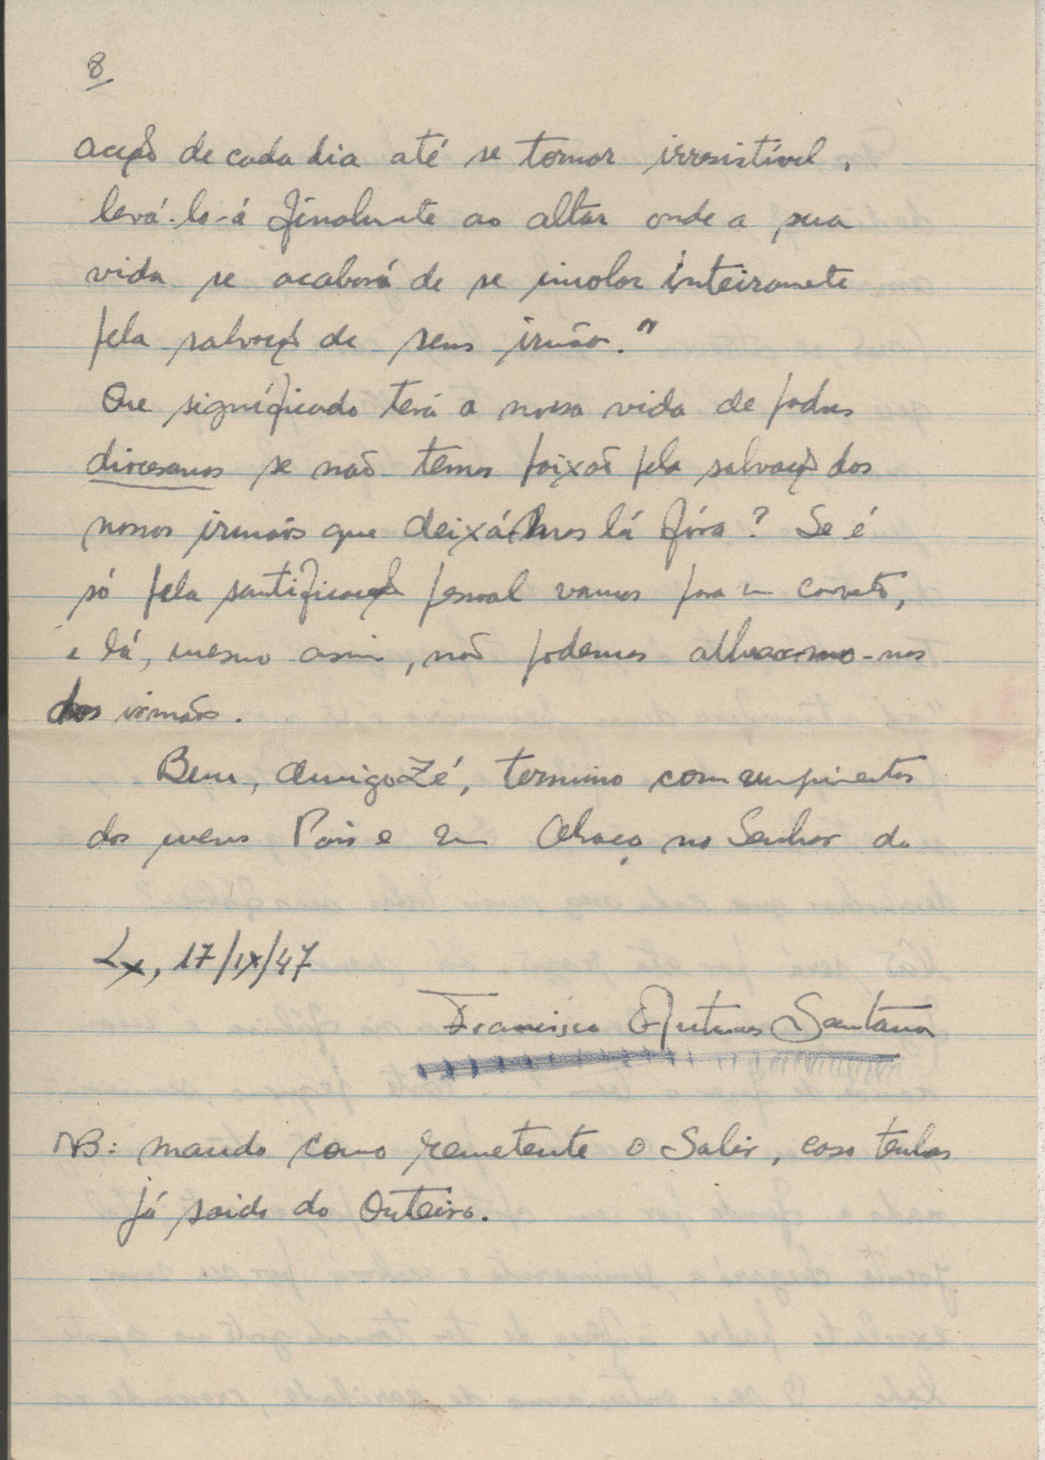 8
acção de cada dia até se tornar irresistível,
levá-lo-á finalmente ao altar onde a sua
vida se acabará de se imolar inteiramente
pela salvação de seus irmãos."
Que significado terá a nossa vida de padres
diocesanos se não temos paixão pela salvação dos
nossos irmãos que deixámos lá fóra? Se é
só pela santificação pessoal vamos para um convento,
e lá, mesmo assim, não podemos alhearmo-nos
dos irmãos.
Bem, amigo Zé, termino com cumprimentos
dos meus Pais e um Abraço no Senhor do
Lx, 17/IX/47
Francisco Antunes Santana
NB: mando como remetente o Salir, caso tenhas
já saido do Outeiro.